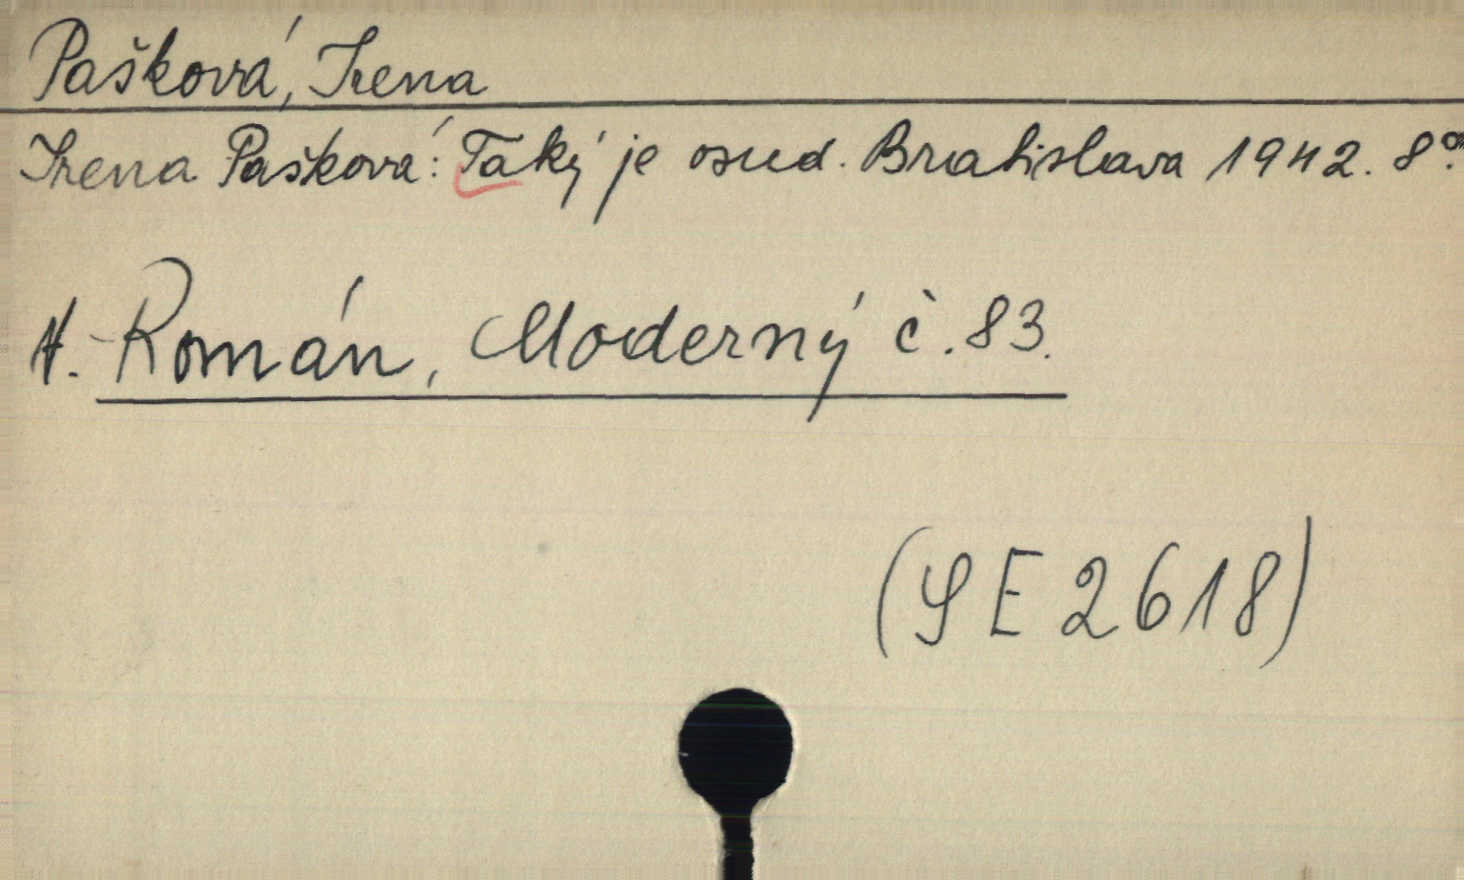 Pašková, Irena
Irena Pašková: Taký je osud. Bratislava 1942. 8°.
A. - Román, Moderný č. 83.
(SE 2618)